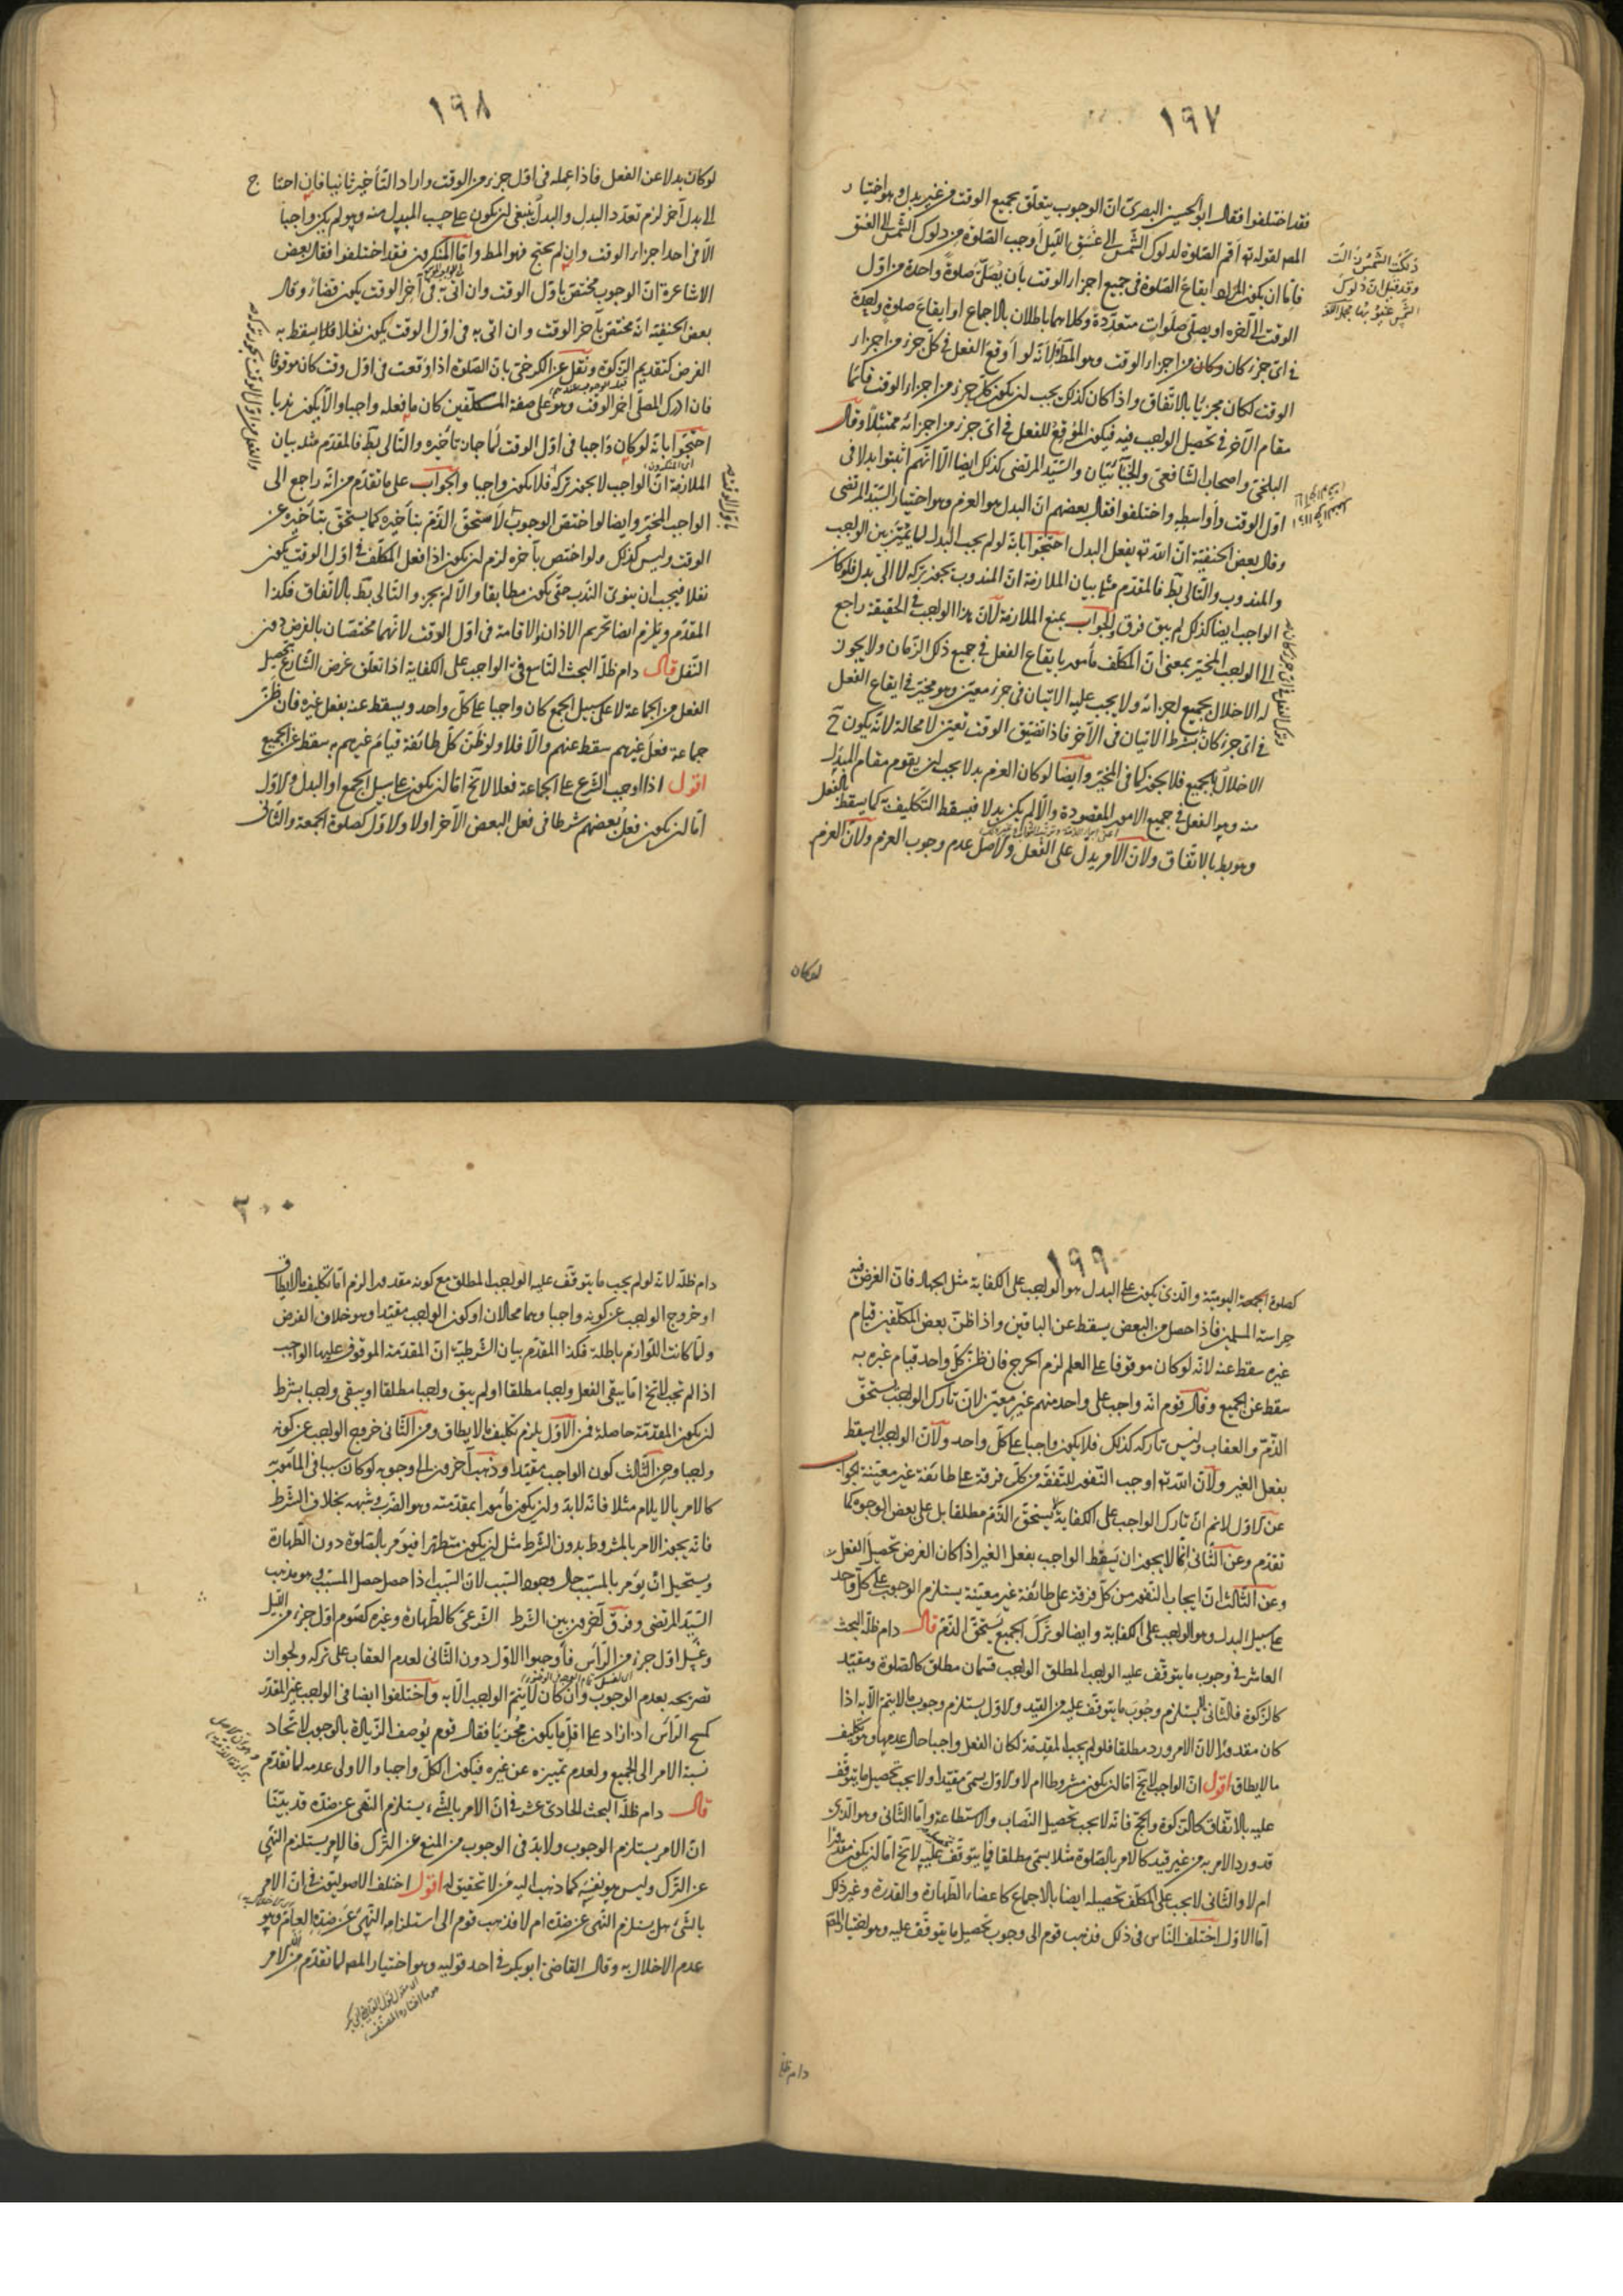 ١٩٧
فقد اختلفوا فقال ابو الحسين البصرى ان الوجوب يتعلق بجميع الوقت من غير بدل وهو اختيار
المصه لقوله ته اقم الصلوة لدلوك الشمس الى غسق الليل اوجب الصلوة من دلوك الشمس الى الغسق
فاما ان يكون المراد ايقاع الصلوة فى جميع اجزاء الوقت بان يصلى صلوة واحدة من اول
الوقت الى آخره او يصلى صلوات متعددة وكلاهما باطلان بالاجماع او ايقاع صلوة واحدة
فى اى جزء كان وكان من اجزاء الوقت وهو المط ولانه لو اوقع الفعل فى كل جزء من اجزاء
الوقت لكان مجزيا بالاتفاق واذا كان كذلك يجب ان يكون كل جزء من اجزاء الوقت قائما
مقام الآخر فى تحصيل الواجب فيه فيكون الموقع للفعل فى اى جزء من اجزائه ممتثلا وقال
البلخى واصحاب الشافعى والجبائيان والسيد المرتضى كذلك ايضا الا انهم اثبتوا بدلا فى
اول الوقت واواسطه واختلفوا فقال بعضهم ان البدل هو العزم وهو اختيار السيد المرتضى
وقال بعض الحنفية ان الله ته يفعل البدل احتجوا بانه لو لم يجب البدل لما تميز بين الواجب
والمندوب والتالى بط فالمقدم مثله بيان الملازمة ان المندوب يجوز تركه لا الى بدل فلو كان
الواجب ايضا كذلك لم يبق فرق والجواب بمنع الملازمة لان هذا الواجب فى الحقيقة راجع
الى الواجب المخير بمعنى ان المكلف مأمور بايقاع الفعل فى جميع ذلك الزمان ولا يجوز
له الاخلال بجميع اجزائه ولا يجب عليه الاتيان فى جزء معين وهو مخير فى ايقاع الفعل
فى اى جزء كان بشرط الاتيان فى الآخر فاذا تضيق الوقت تعين لا محالة لانه يكون ح
الاخلال بالجميع فلا يجوز كما فى المخير وايضا لو كان العزم بدلا يجب ان يقوم مقام المبدل
منه وهو الفعل فى جميع الامور المقصودة والا لم يكن بدلا فيسقط التكليف به كما يسقط بالفعل
وهو بط بالاتفاق ولان الامر يدل على الفعل والاصل عدم وجوب العزم ولان العزم
لو كان
١٩٨
لو كان بدلا عن الفعل فاذا عمله فى اول جزء من الوقت واراد التأخير ثانيا فان احتاج
الى بدل آخر لزم تعدد البدل والبدل ينبغى ان يكون على حسب المبدل منه وهو لم يكن واجبا
الا فى احد اجزاء الوقت وان لم يحتج فهو المط واما المنكرون فقد اختلفوا فقال بعض
الاشاعرة ان الوجوب مختص باول الوقت وان اتى به فى آخر الوقت يكون قضاء وقال
بعض الحنفية انه مختص بآخر الوقت وان اتى به فى اول الوقت يكون نفلا فلا يسقط به
الفرض كتقديم الزكوة ونقل عن الكرخى بان الصلوة اذا وقعت فى اول وقت كان موقوفا
فان ادرك المصلى اخر الوقت وهو على صفة المكلفين كان ما فعله واجبا والا يكون ندبا
احتجوا بانه لو كان واجبا فى اول الوقت لما جاز تأخيره والتالى بط فالمقدم مثله بيان
الملازمة ان الواجب لا يجوز تركه فلا يكون واجبا والجواب على ما تقدم من انه راجع الى
الواجب المخير وايضا لو اختص الوجوب لاستحق الذم بتأخيره كما يستحق بتأخيره عن
الوقت وليس كذلك ولو اختص بآخره لزم ان يكون اذا فعل المكلف فى اول الوقت يكون
نفلا فيجب ان ينوى الندب حتى يكون مطابقا والا لم يجز والتالى بط بالاتفاق فكذا
المقدم ويلزم ايضا تحريم الاذان والاقامة فى اول الوقت لانهما مختصان بالفرض دون
النفل قال دام ظله البحث التاسع فى الواجب على الكفاية اذا تعلق غرض الشارع بتحصيل
الفعل من الجماعة لا على سبيل الجمع كان واجبا على كل واحد ويسقط عنه بفعل غيره فان ظن
جماعة فعل غيرهم سقط عنهم والا فلا ولو ظن كل طائفة قيام غيرهم به سقط عن الجميع
اقول اذا اوجب الشرع على الجماعة فعلا لا يخ اما ان يكون على سبيل الجمع او البدل والاول
اما ان يكون فعل بعضهم شرطا فى فعل البعض الآخر اولا والاول كصلوة الجمعة والثانى
١٩٩
كصلوة الجمعة اليومية والذى يكون على البدل هو الواجب على الكفاية مثل الجهاد فان الغرض فيه
حراسة المسلمين فاذا حصل من البعض يسقط عن الباقين واذا ظن بعض المكلفين قيام
غيره سقط عنه لانه لو كان موقوفا على العلم لزم الحرج فان ظن كل واحد قيام غيره به
سقط عن الجميع وقال قوم انه واجب على واحد منهم غير معين لان تارك الواجب يستحق
الذم والعقاب وليس تاركه كذلك فلا يكون واجبا على كل واحد ولان الواجب لا يسقط
بفعل الغير ولان الله ته اوجب النفور للتفقه من كل فرقة على طائفة غير معينة والجواب
عن الاول لا نم ان تارك الواجب على الكفاية لا يستحق الذم مطلقا بل على بعض الوجوه كما
تقدم وعن الثانى انما لا يجوز ان يسقط الواجب بفعل الغير اذا كان الغرض تحصيل الفعل
وعن الثالث ان ايجاب النفور من كل فرقة على طائفة غير معينة يستلزم الوجوب على كل واحد
على سبيل البدل وهو الواجب على الكفاية وايضا لو ترك الجميع يستحق الذم قال دام ظله البحث
العاشر فى وجوب ما يتوقف عليه الواجب المطلق الواجب قسمان مطلق كالصلوة ومقيد
كالزكوة فالثانى لا يستلزم وجوب ما يتوقف عليه من القيد والاول يستلزم وجوب ما لا يتم الا به اذا
كان مقدورا لان الامر ورد مطلقا فلو لم يجب المقدمة لكان الفعل واجبا حال عدمها وهو تكليف
ما لا يطاق اقول ان الواجب لا يخ اما ان يكون مشروطا ام لا والاول يسمى مقيدا ولا يجب تحصيل ما يتوقف
عليه بالاتفاق كالزكوة والحج فانه لا يجب تحصيل النصاب والاستطاعة واما الثانى وهو الذى
قد ورد الامر به من غير قيد كالامر بالصلوة مثلا يسمى مطلقا فما يتوقف عليه لا يخ اما ان يكون مقدورا
ام لا والثانى لا يجب على المكلف تحصيله ايضا بالاجماع كاعضاء الطهارة والقدرة وغير ذلك
اما الاول اختلف الناس فى ذلك فذهب قوم الى وجوب تحصيل ما يتوقف عليه وهو اختيار المصه
دام ظله
٢٠٠
دام ظله لانه لو لم يجب ما يتوقف عليه الواجب المطلق مع كونه مقدورا لزم اما تكليف ما لا يطاق
او خروج الواجب عن كونه واجبا وهما محالان او كون الواجب مقيدا وهو خلاف الفرض
ولما كانت اللوازم باطلة فكذا المقدم بيان الشرطية ان المقدمة الموقوف عليها الواجب
اذا لم تجب لا يخ اما يبقى الفعل واجبا مطلقا او لم يبق واجبا مطلقا او يبقى واجبا بشرط
ان يكون المقدمة حاصلة فمن الاول يلزم تكليف ما لا يطاق ومن الثانى خروج الواجب عن كونه
واجبا ومن الثالث كون الواجب مقيدا وذهب آخرون الى وجوبه لو كان سببا فى المأمور به
كالامر بالايلام مثلا فانه لابد وان يكون مأمورا بمقدمته وهو الضرب وشبهه بخلاف الشرط
فانه يجوز الامر بالمشروط بدون الشرط مثل ان يكون متطهرا فيؤمر بالصلوة دون الطهارة
ويستحيل ان يؤمر بالمسبب حال وجود السبب لان السبب اذا حصل حصل المسبب وهو مذهب
السيد المرتضى وفرق آخرون بين الشرط الشرعى كالطهارة وغيره كصوم اول جزء من الليل
وغسل اول جزء من الرأس فأوجبوا الاول دون الثانى لعدم العقاب على تركه ولجواز
تصريحه بعدم الوجوب وان كان لا يتم الواجب الا به واختلفوا ايضا فى الواجب غير المقدر
كمسح الرأس اذا زاد على اقل ما يكون مجزيا فقال قوم يوصف الزيادة بالوجوب لاتحاد
نسبة الامر الى الجميع ولعدم تمييزه عن غيره فيكون الكل واجبا والاولى عدمه لما تقدم
قال دام ظله البحث الحادى عشر فى ان الامر بالشىء يستلزم النهى عن ضده قد بينا
ان الامر يستلزم الوجوب ولابد فى الوجوب من المنع عن الترك فالامر يستلزم النهى
عن الترك وليس هو نفسه كما ذهب اليه من لا تحقيق له اقول اختلف الاصوليون فى ان الامر
بالشىء هل يستلزم النهى عن ضده ام لا فذهب قوم الى استلزامه النهى عن ضده العام وهو
عدم الاخلال به وقال القاضى ابو بكر فى احد قوليه وهو اختيار المصه لما تقدم من ان الامر